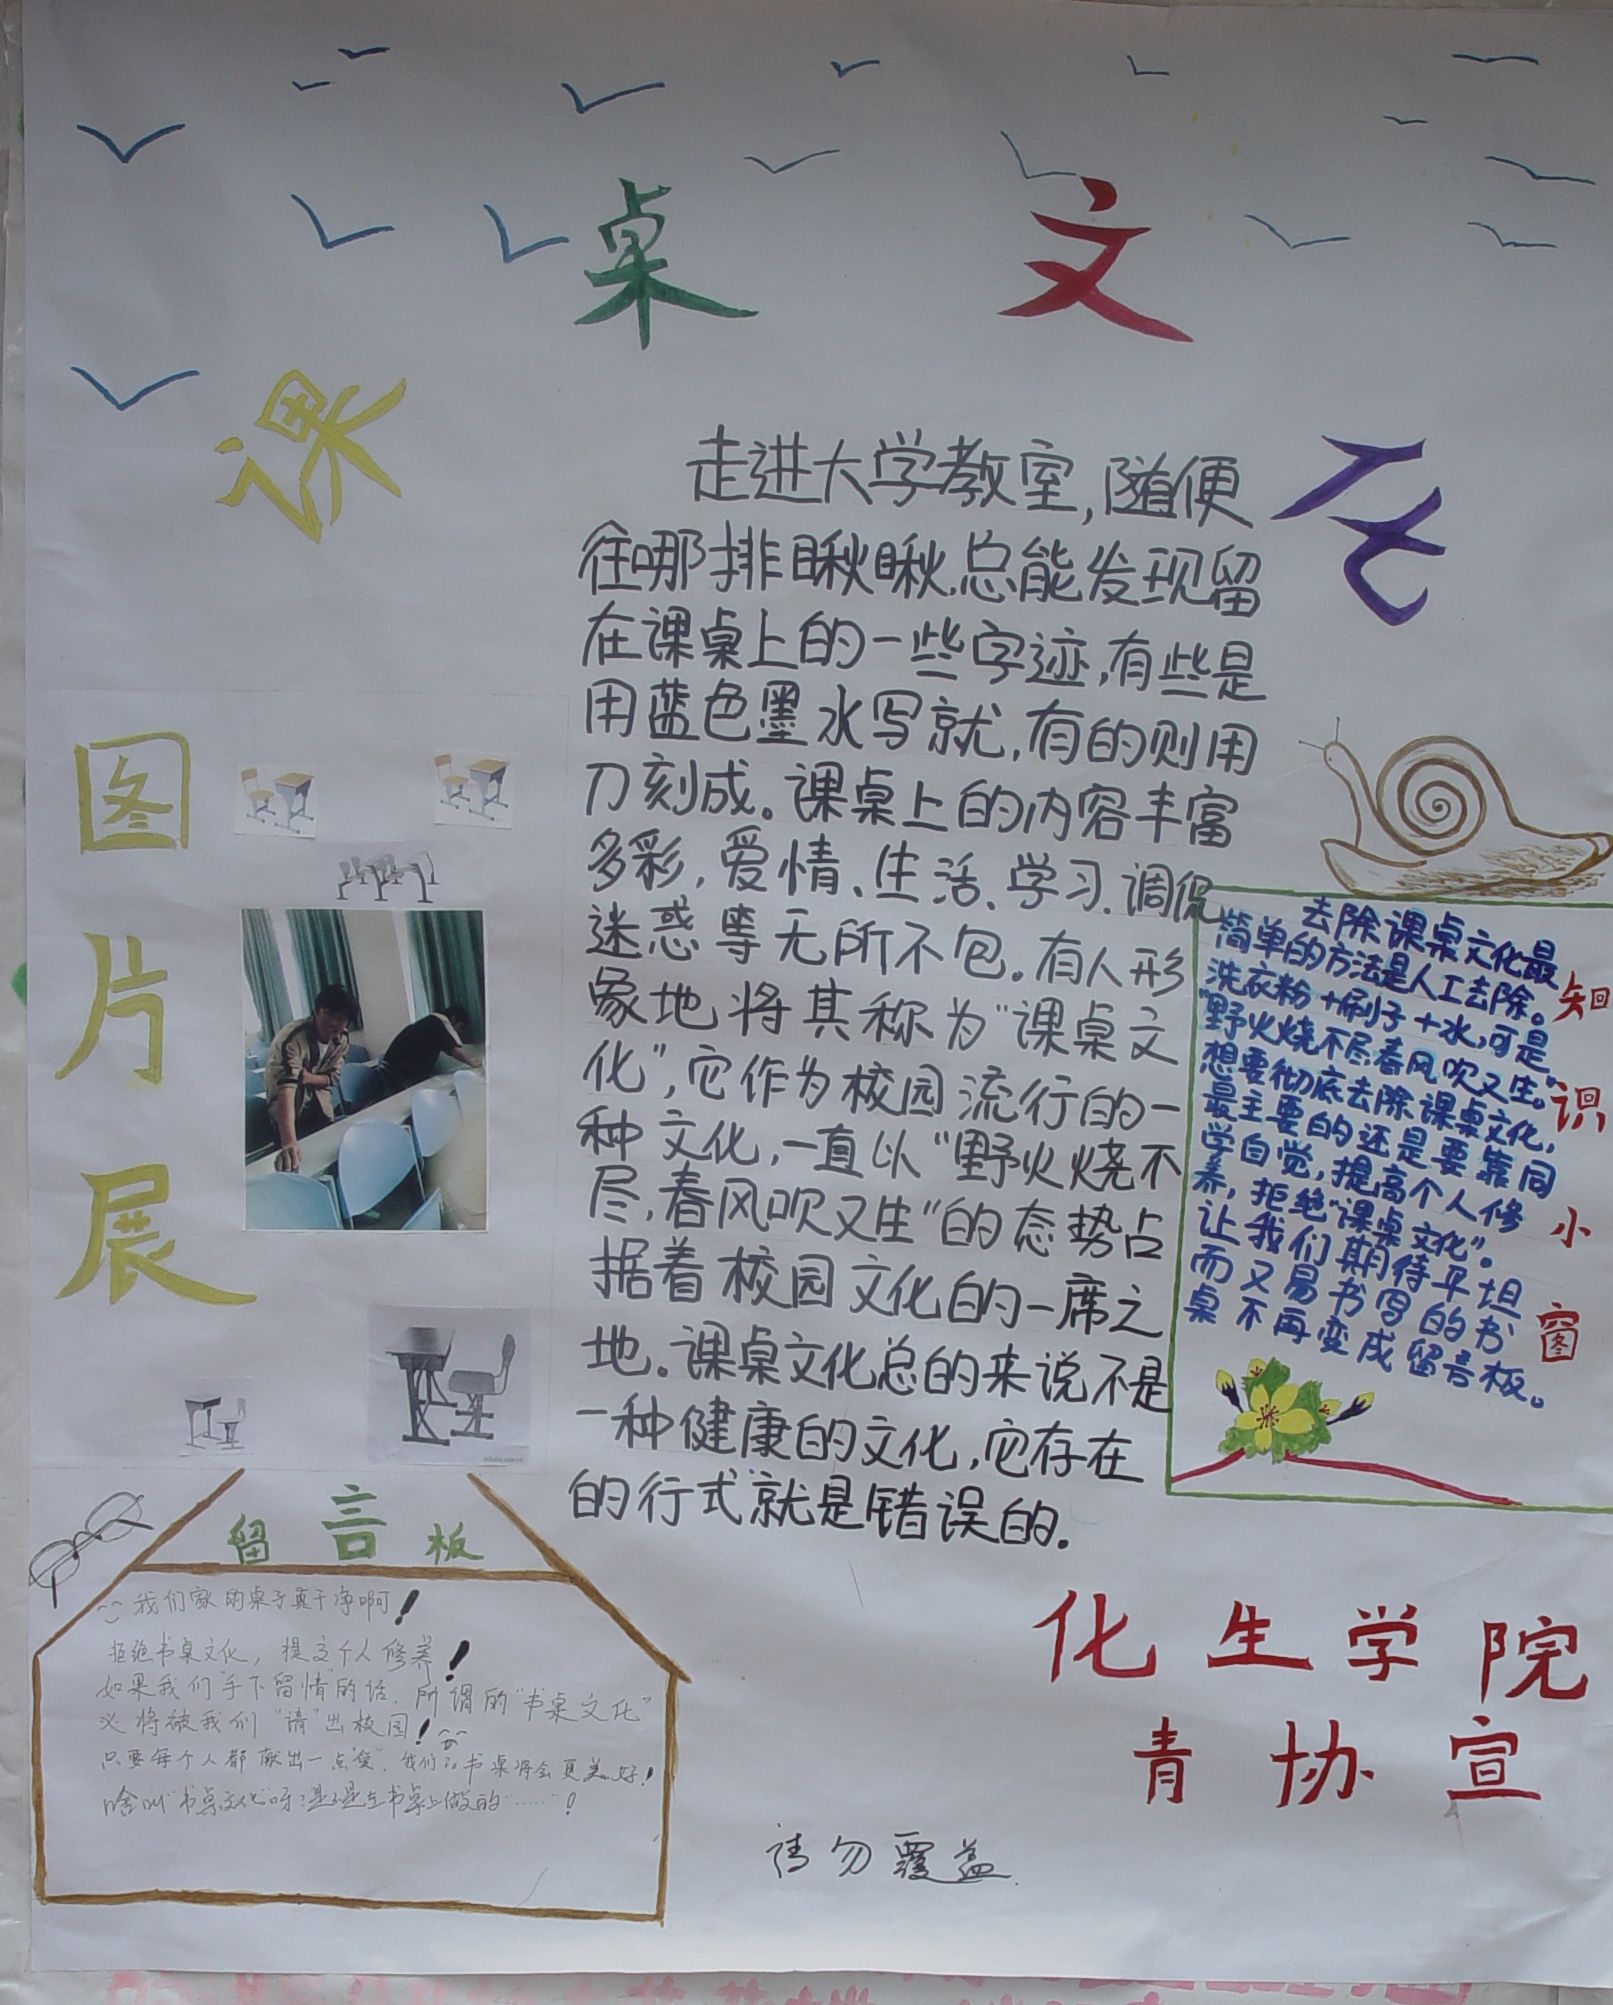 课桌文化
走进大学教室,随便
往哪排瞅瞅,总能发现留
在课桌上的一些字迹,有些是
用蓝色墨水写就,有的则用
刀刻成。课桌上的内容丰富
多彩,爱情、生活、学习、调侃
迷惑等无所不包。有人形
象地将其称为“课桌文
化”,它作为校园流行的一
种文化,一直以“野火烧不
尽,春风吹又生”的态势占
据着校园文化的一席之
地。课桌文化总的来说不是
一种健康的文化,它存在
的行式就是错误的.
图片展
知识小窗
去除课桌文化最
简单的方法是人工去除。
洗衣粉+刷子+水,可是
“野火烧不尽,春风吹又生。”
想要彻底去除课桌文化,
最主要的还是要靠同
学自觉,提高个人修
养,拒绝“课桌文化”。
让我们期待平坦
而又易书写的书
桌不再变成留言板。
留言板
我们家的桌子真干净啊!
拒绝书桌文化,提高个人修养!
如果我们“手下留情”的话,所谓的“书桌文化”
必将被我们“请”出校园!
只要每个人都献出一点“爱”,我们的书桌将会更美好!
啥叫“书桌文化”呀?是不是在书桌上做的“……”!
化生学院
青协宣
请勿覆盖